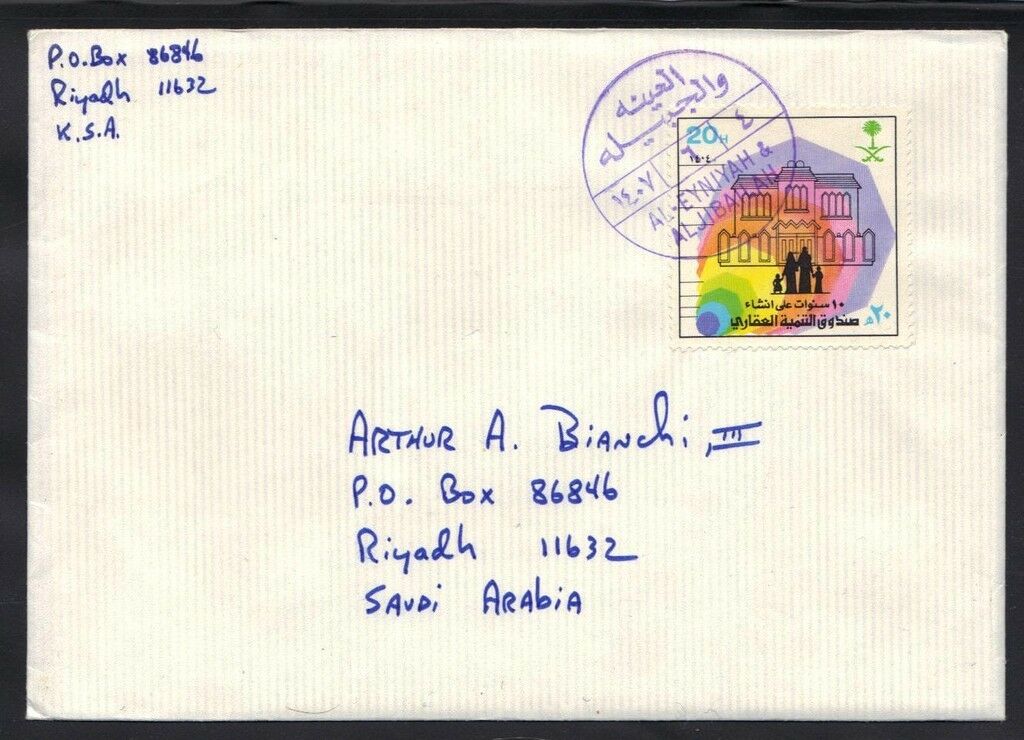 P.O. Box 86846
Riyadh 11632
K.S.A.
العيينه
والجبيله
١٤٠٧ ٦ ٤
AL-EYNIYAH &
ALJIBAILAH
20H
١٤٠٤
١٠ سنوات على انشاء
صندوق التنمية العقاري
٢٠ هـ
ARTHUR A. Bianchi, III
P.O. Box 86846
Riyadh 11632
SAUDi ARABiA